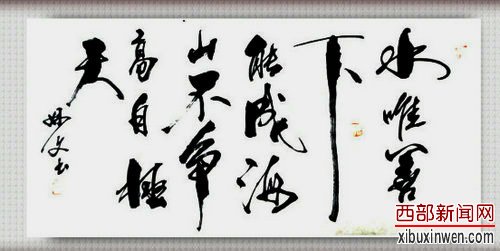 水唯善
下
能成海
山不争
高自極
天
西部新闻网
xibuxinwen.com